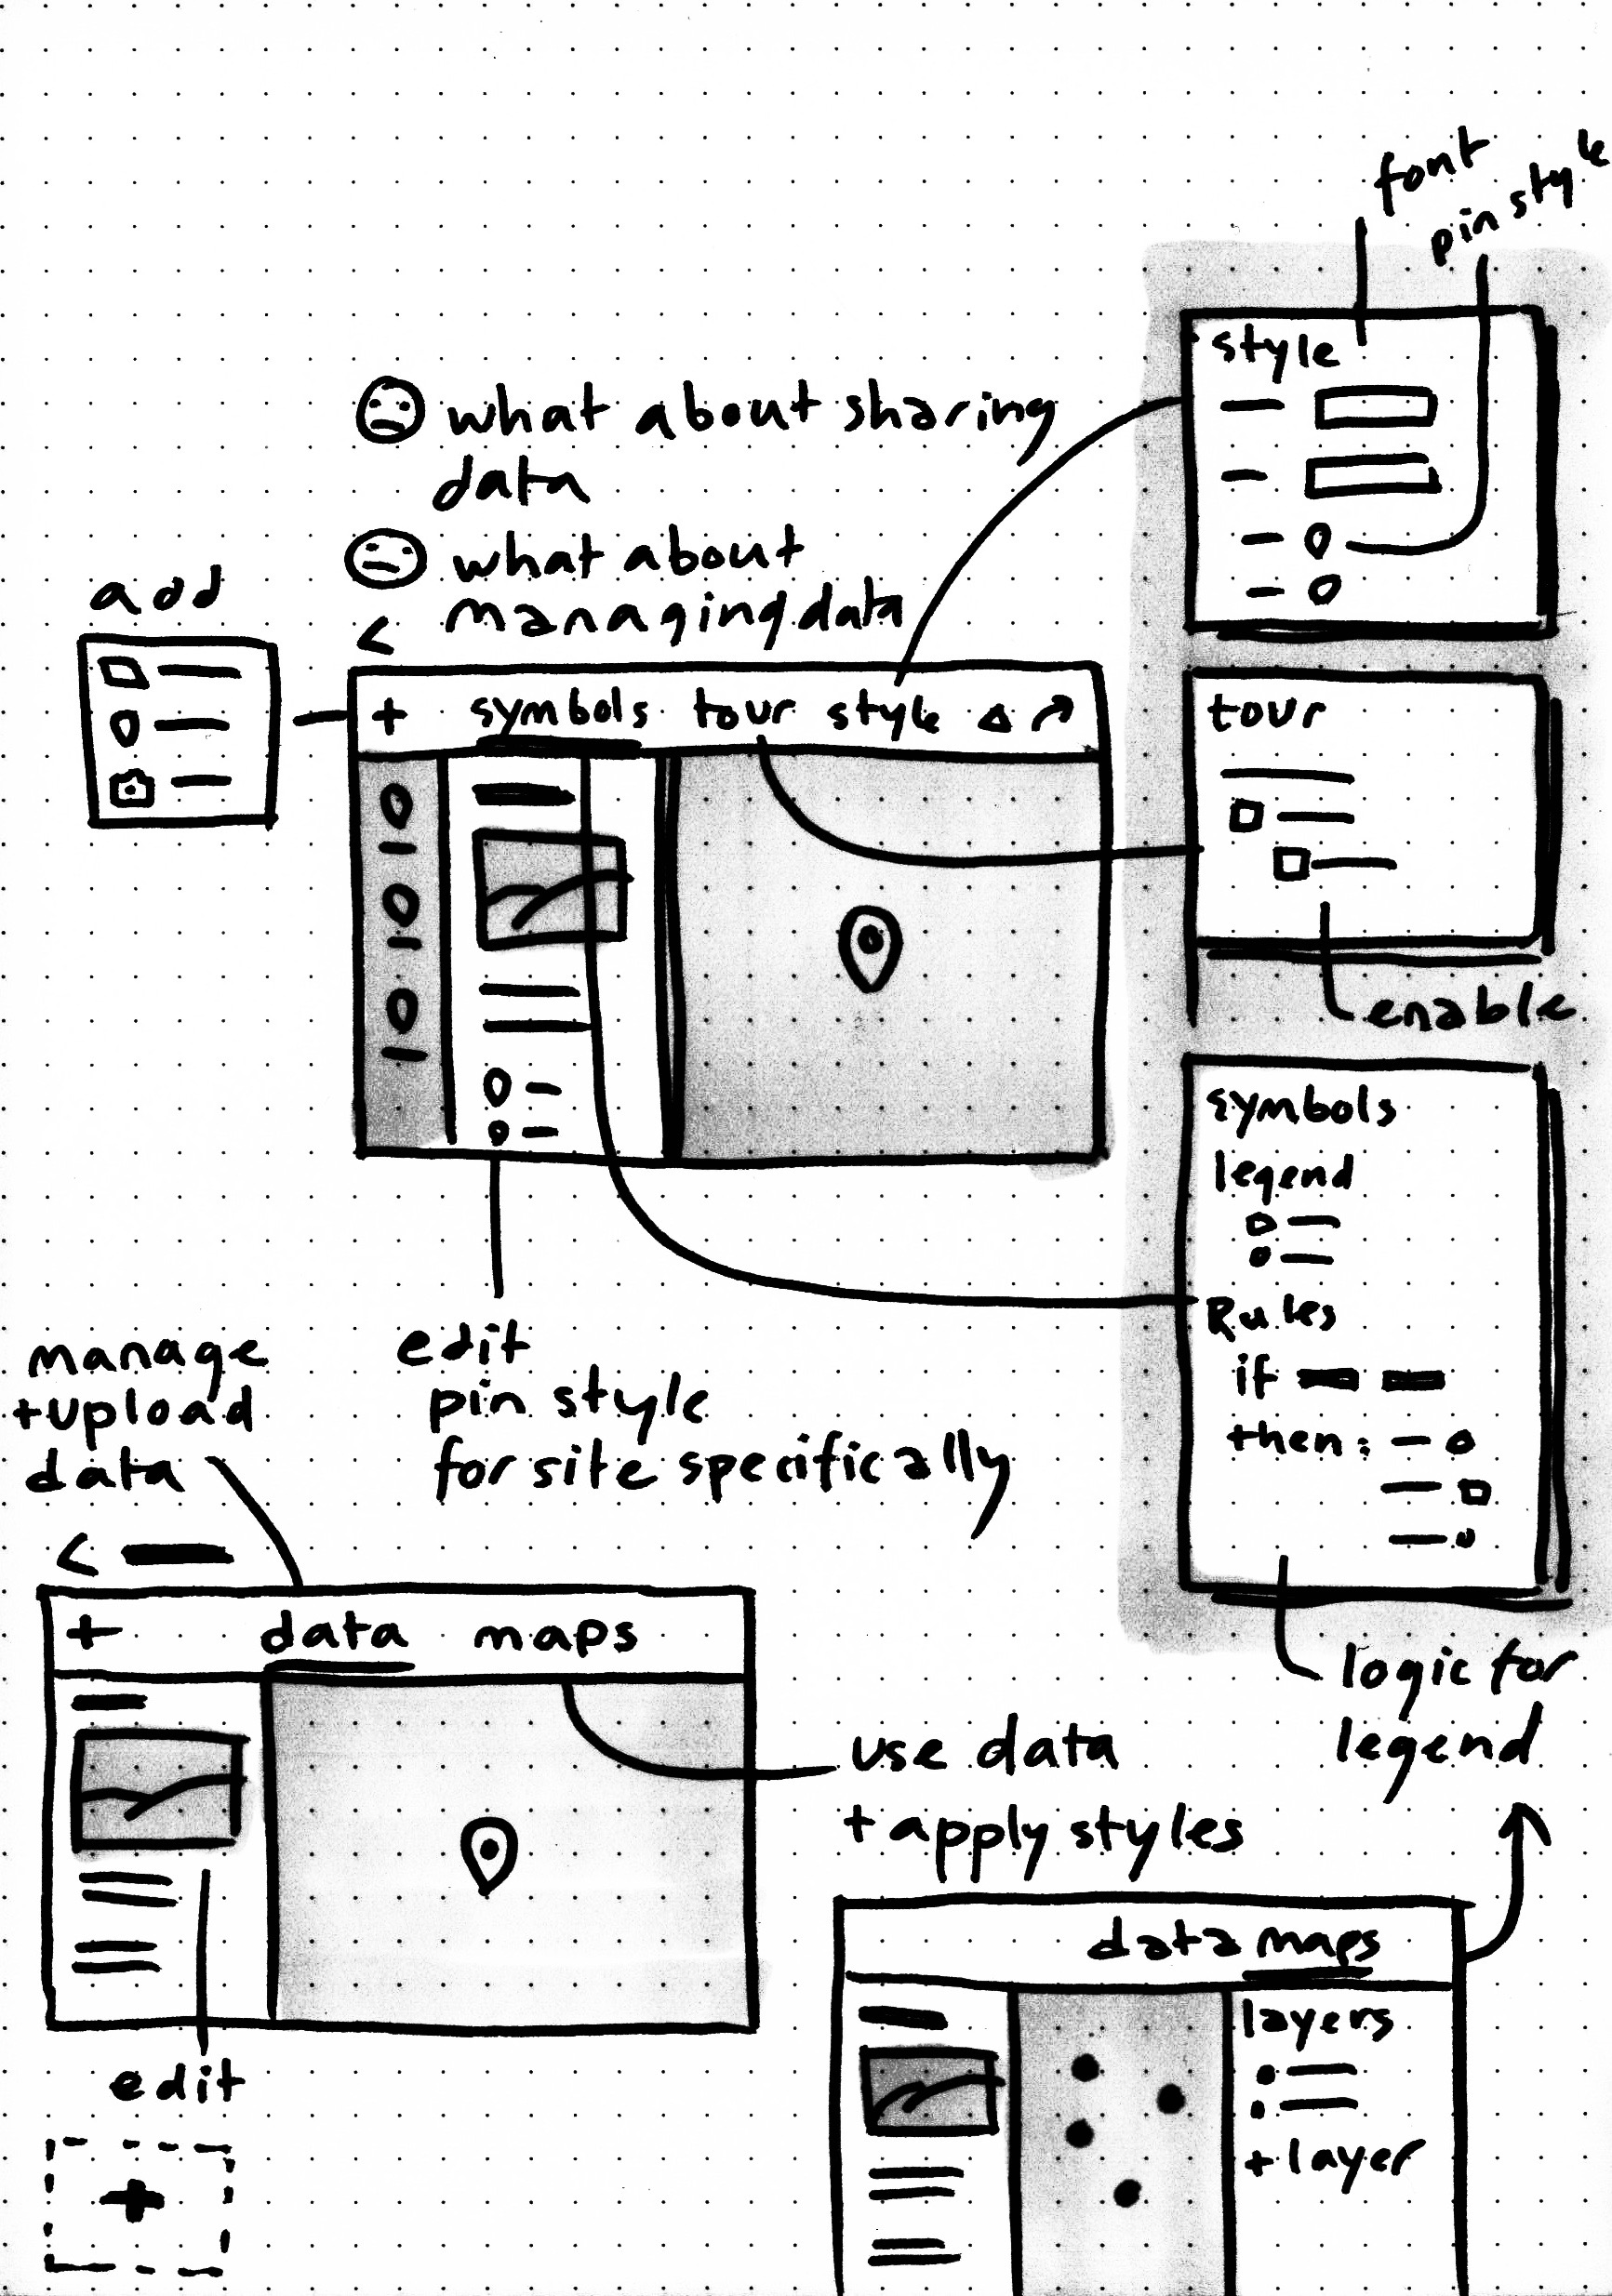 font
pin style
style
what about sharing
data
what about
managing data
add
<
+ symbols tour style
tour
enable
symbols
legend
Rules
if
then:
logic for
legend
edit
pin style
for site specifically
manage
+upload
data
<
+ data maps
edit
+
use data
+ apply styles
data maps
layers
+ layer